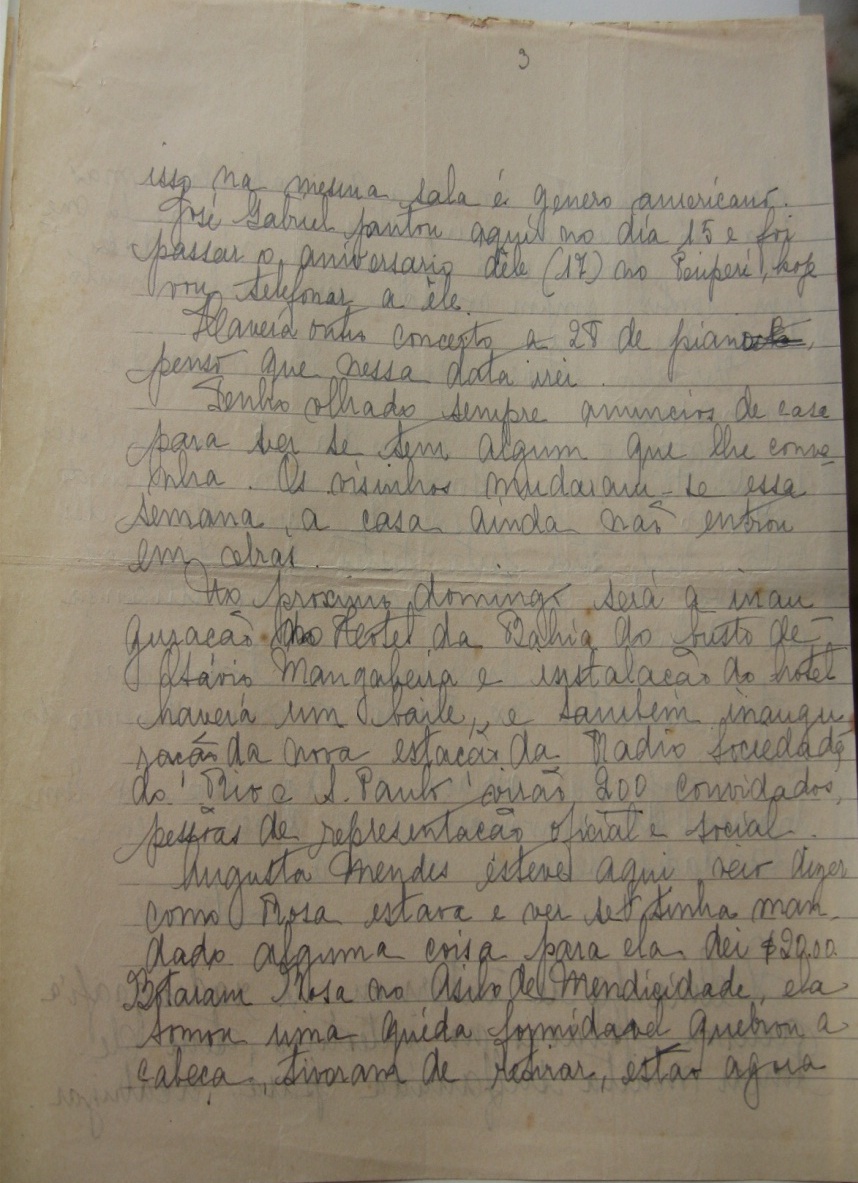 3
isso na mesma sala é genero americano.
José Gabriel jantou aqui no dia 15 e foi
passar o aniversario dêle (17) no Periperi, hoje
vou telefonar a êle.
Haverá outro concerto a 28 de piano,
penso que nessa data irei.
Tenho olhado sempre anuncios de casa
para ver se tem algum que lhe conve-
nha. Os visinhos mudaram-se essa
semana, a casa ainda não entrou
em obras.
No proximo domingo será a inau
guração no Hotel da Bahia do busto de
Otávio Mangabeira e instalação do hotel
haverá um baile, e também inaugu
ração da nova estação da Radio Sociedade
do Rio e S. Paulo virão 200 convidados,
pessôas de representação oficial e social.
Augusta Mendes esteve aqui veio dizer
como Rosa estava e ver se tinha man-
dado alguma coisa para ela dei $20.00
Botaram Rosa no Asilo de Mendicidade, ela
tomou uma quéda formidavel quebrou a
cabeça, tiveram de retirar, estão agora